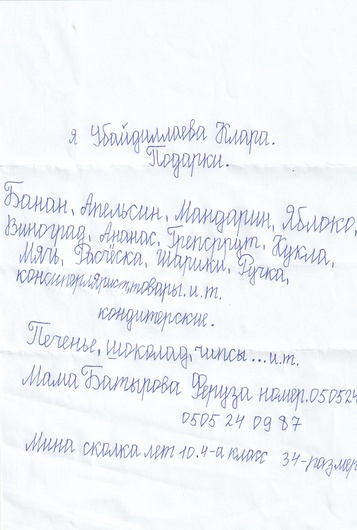 я Убайдиллаева Клара.
Подарки.
Банан, Апельсин, Мандарин, Яблоко,
Виноград, Ананас, Грепсррут, Кукла,
Мяч, Расчёска, Шарики, Ручка,
товары.и.т.
кондитерские.
Печенье, шоколад, чипсы...и.т.
Мама Батырова Феруза номер.050524
0505 24 09 87
Мина сколка лет 10.4-а класс 34-размер